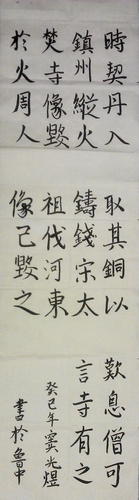 時契丹入
鎮州縱火
焚寺像毀
於火周人
取其銅以
鑄錢宋太
祖伐河東
像已毀之
歎息僧可
言寺有之
癸巳年窦光煜
書於魯中